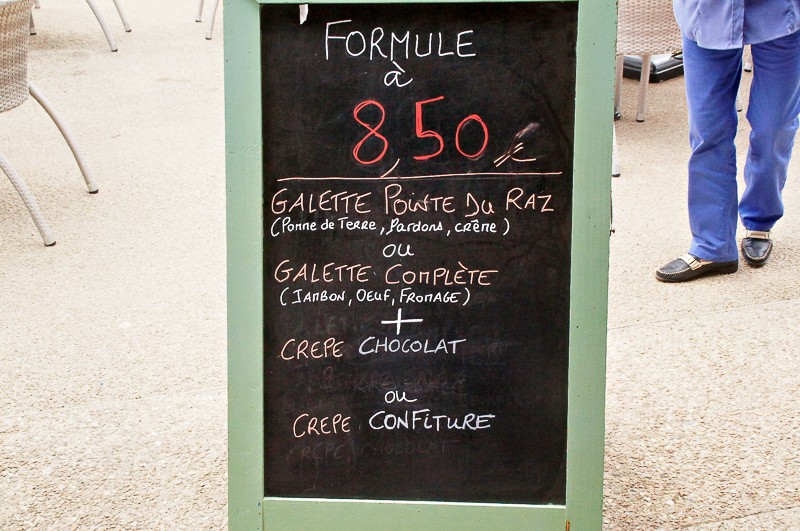 FORMULE
à
8,50 €
GALETTE POINTE DU RAZ
(Pomme de Terre, Lardons, crème)
ou
GALETTE COMPLÈTE
(JAMBON, OEUF, FROMAGE)
+
CREPE CHOCOLAT
ou
CREPE CONFITURE